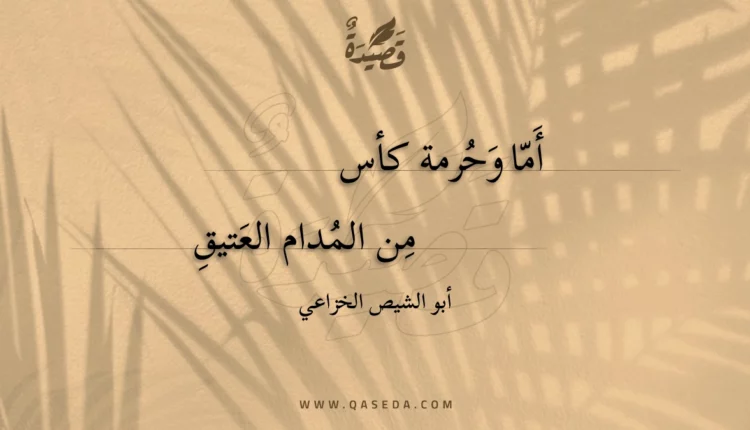 قَصِيدَةٌ
أَمّا وَحُرمة كأس
مِن المُدام العَتيقِ
أبو الشيص الخزاعي
WWW.QASEDA.COM